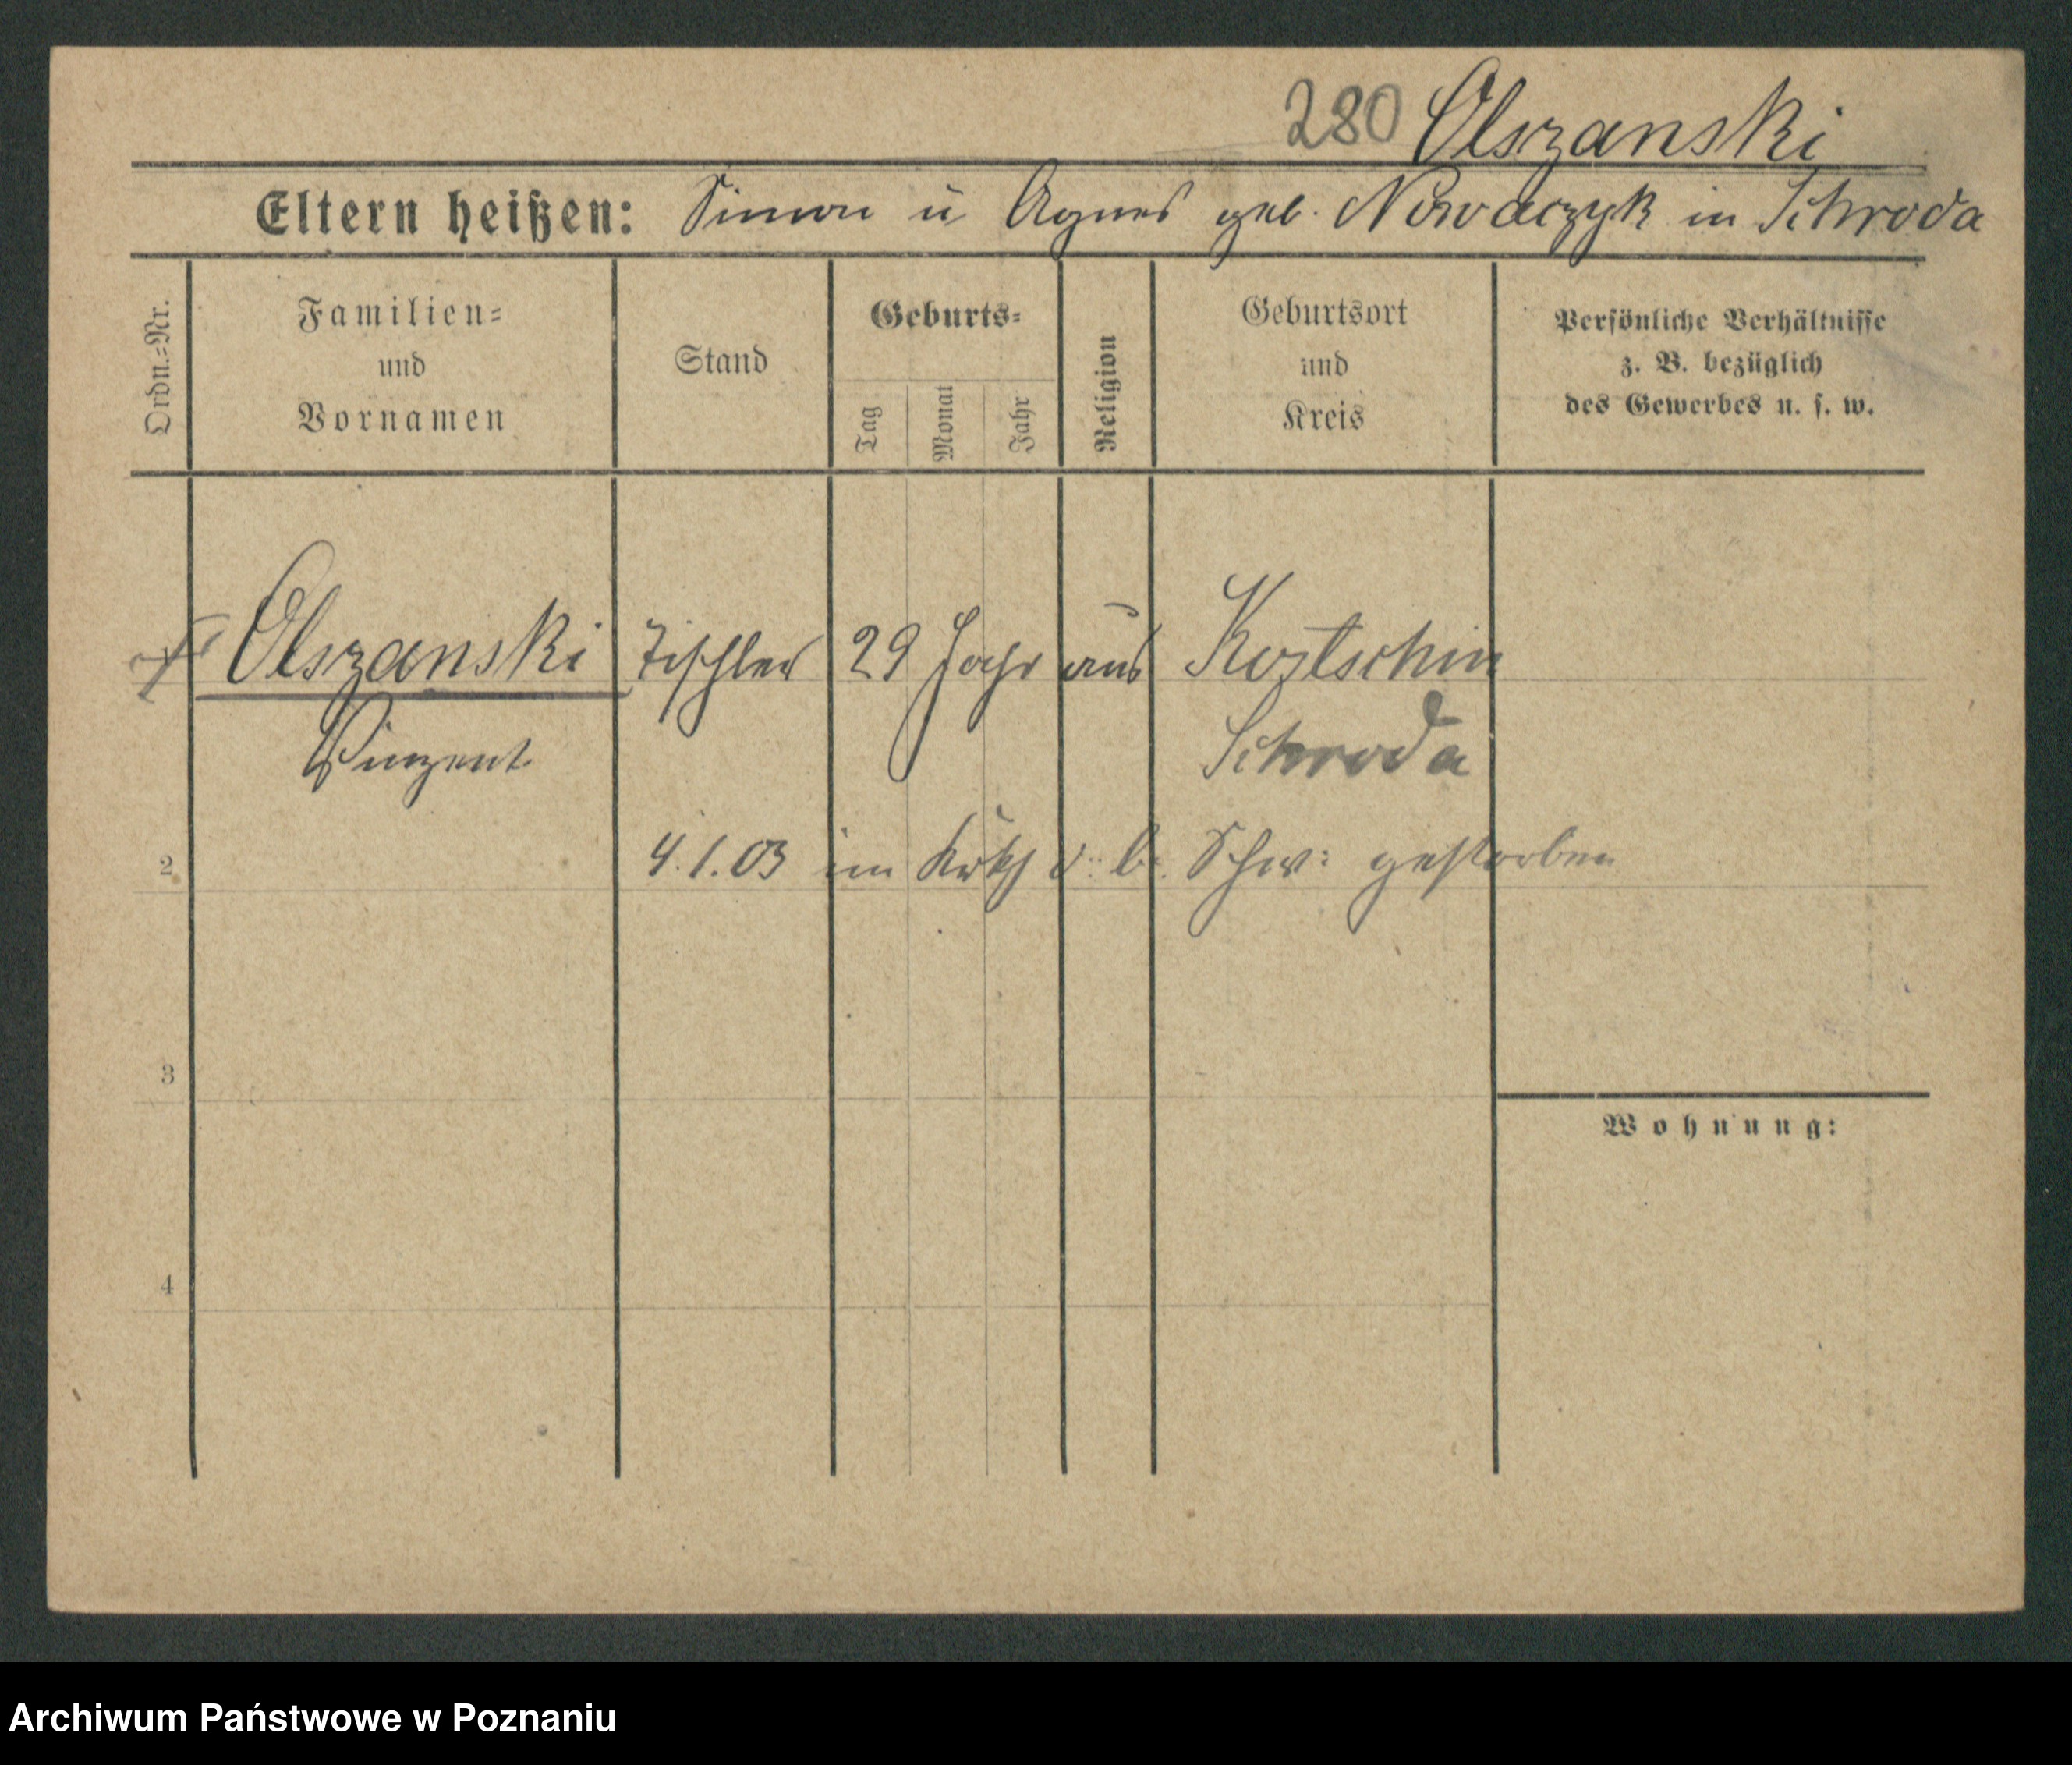 280 Olszanski
Eltern heißen: Simon u Agnes geb. Nowaczyk in Schroda
Ordn.-Nr.
Familien-
und
Vornamen
Stand
Geburts-
Tag
Monat
Jahr
Religion
Geburtsort
und
Kreis
Persönliche Verhältnisse
z. B. bezüglich
des Gewerbes u. s. w.
Olszanski Tischler 29 Jahr aus Kostschin
Vinzent Schroda
2 4.1.03 im d. b. Schw: gestorben
3
Wohnung:
4
Archiwum Państwowe w Poznaniu